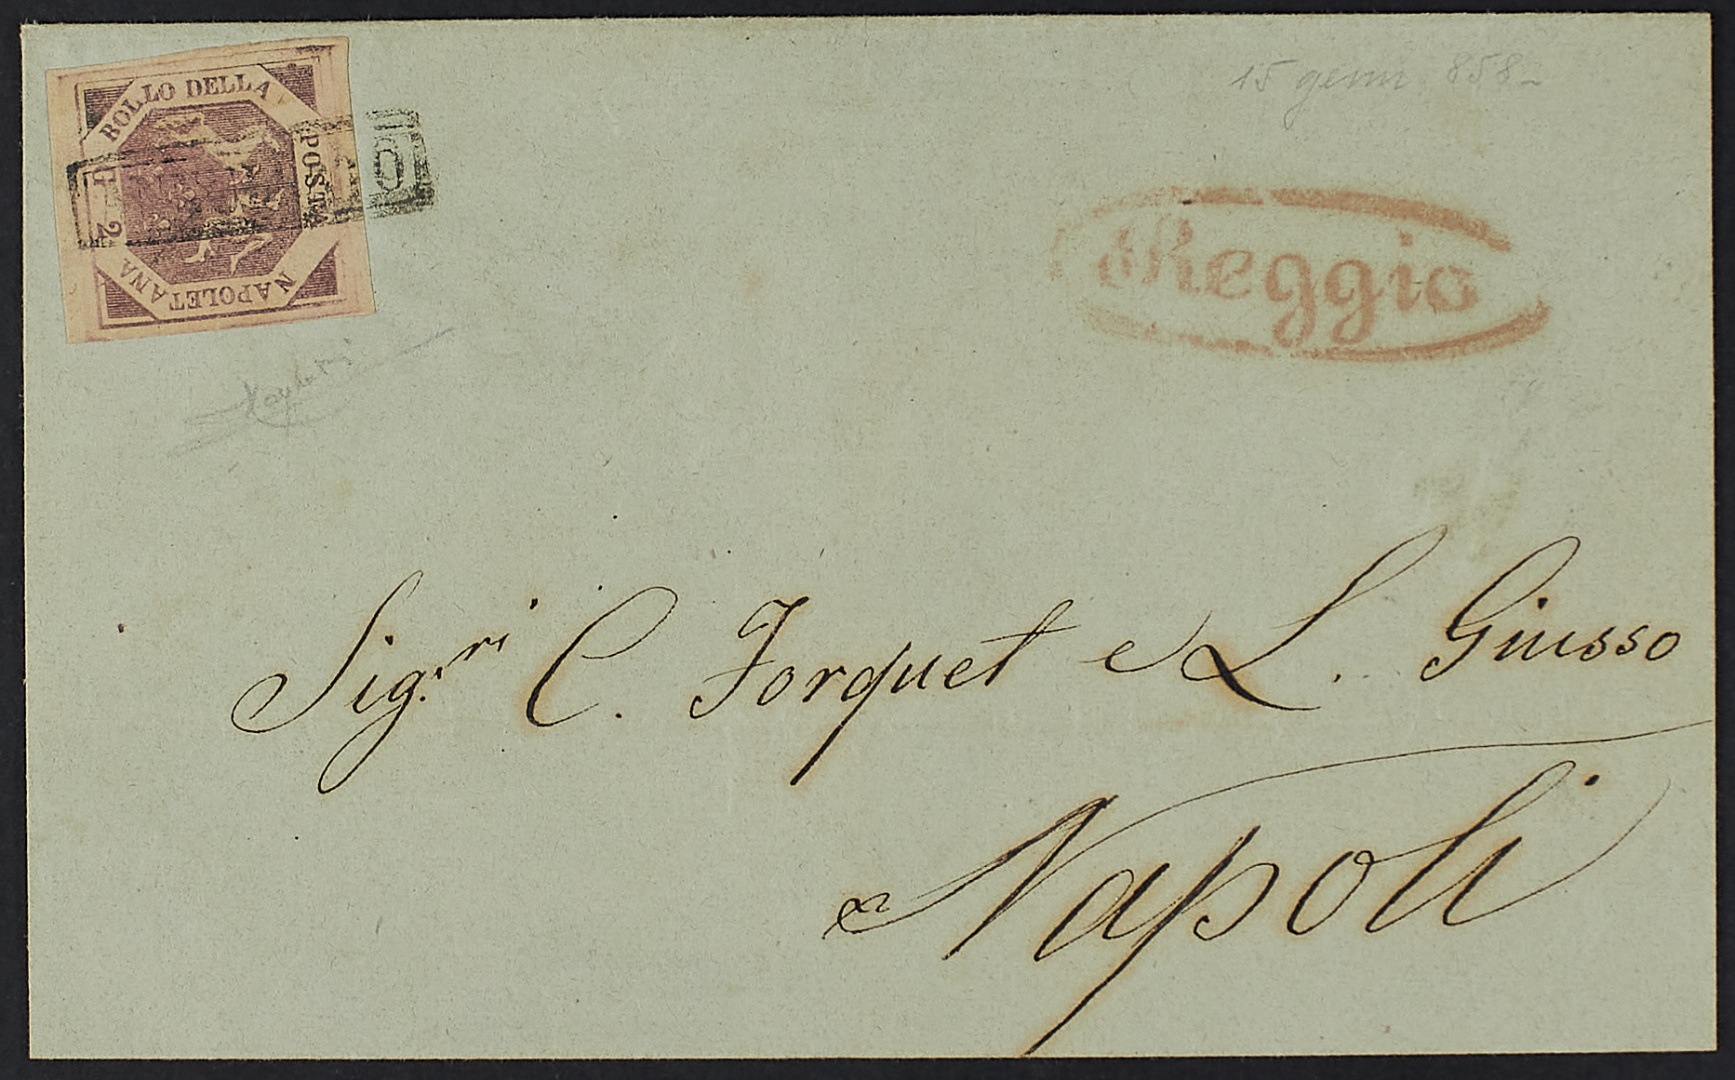 15 genn. 858-
BOLLO DELLA
POSTA
NAPOLETANA
G. 2
Reggio
Sig.ri C. Forquet e L. Giusso
Napoli